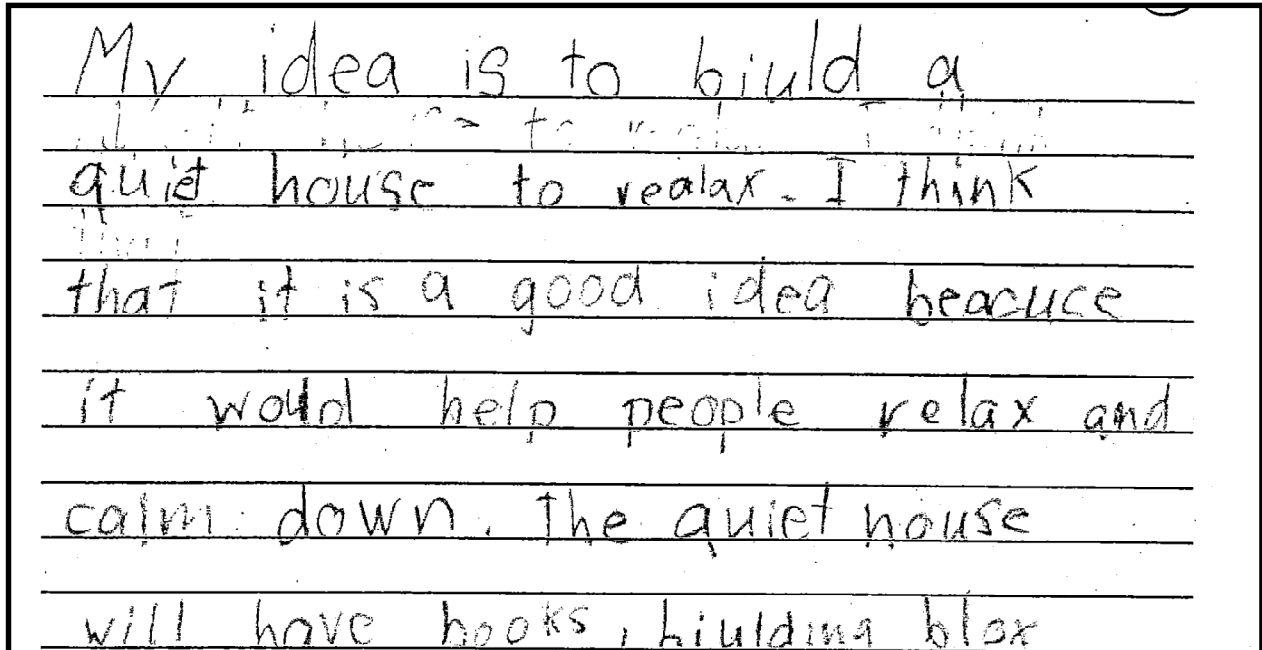 My idea is to biuld a
quiet house to realax. I think
that it is a good idea beacuce
it would help people relax and
calm down. The quiet house
will have books, biulding blox